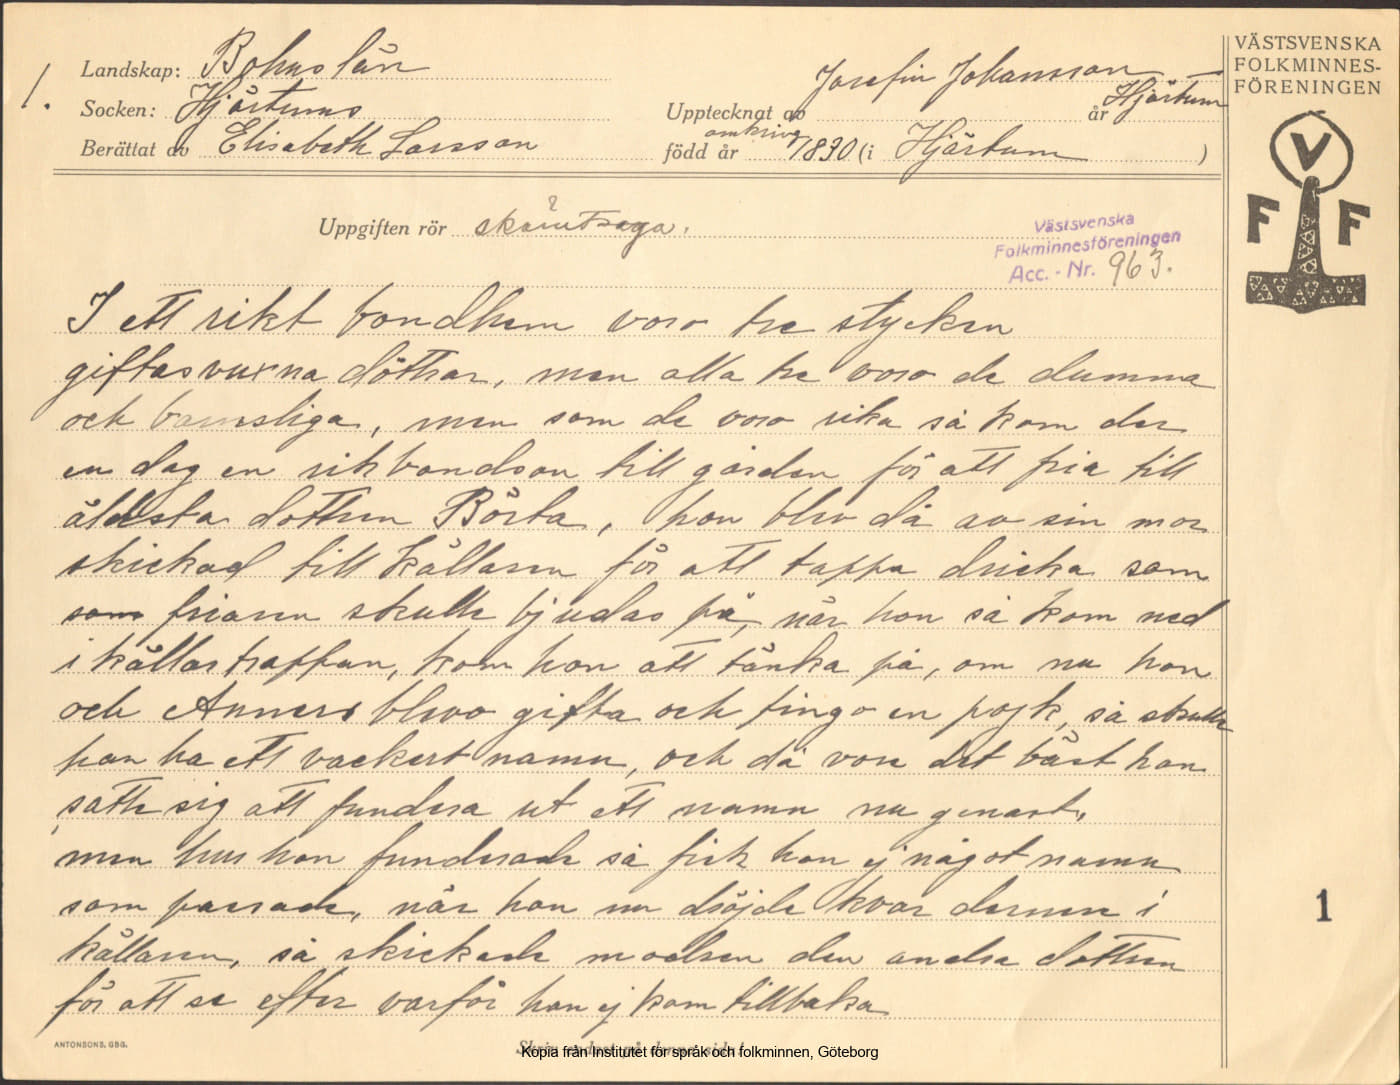 1.
Landskap: Bohuslän
Socken: Hjärtums
Berättat av Elisabeth Larsson
Upptecknat av Josefin Johansson
år Hjärtum
född år omkring 1830 (i Hjärtum )
VÄSTSVENSKA
FOLKMINNES-
FÖRENINGEN
V
F F
Uppgiften rör skämtsaga.
?
Västsvenska
Folkminnesföreningen
Acc. - Nr. 963.
I ett rikt bondhem voro tre stycken
giftasvuxna döttrar, men alla tre voro de dumma
och barnsliga, men som de voro rika så kom der
en dag en rik bondson till gården för att fria till
äldsta dottren Börta, hon blev då av sin mor
skickad till källaren för att tappa dricka som
som friaren skulle bjudas på, när hon så kom ned
i källartrappan, kom hon att tänka på, om nu hon
och Anners blevo gifta och fingo en pojk, så skulle
han ha ett vackert namn, och då vore det bäst hon
satte sig att fundera ut ett namn nu genast,
men hur hon funderade så fick hon ej något namn
som passade, när hon nu dröjde kvar dernere i
källaren, så skickade modren den andre dottren
för att se efter varför hon ej kom tillbaka
1
ANTONSONS, GBG.
Skriv endast på denna sida!
Kopia från Institutet för språk och folkminnen, Göteborg